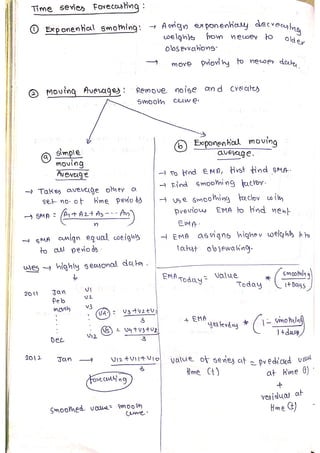 Time series Forecasting:
① Exponential smothing: → Assign exponentially decreasing
weights from newer to older
observations.
→ more priority to newer data.
② Moving Averages: Remove noise and creates
smooth curve.
ⓐ simple
moving
Average
→ Takes average other a
set no. of time periods
→ SMA = (A1 + A2 + A3 --- An)
n
→ SMA assign equal weights
to all periods.
uses → highly seasonal data.
2011 Jan V1
Feb V2
march V3
V4 = V3+V2+V1
3
V5 = V4+V3+V2
3
Dec V12
2012 Jan → V12+V11+V10
3
forecasting
smoothed value = smooth
curve.
ⓑ Exponential moving
average.
→ To find EMA, first find SMA.
→ Find smoothing factor.
→ use smoothing factor with
previous EMA to find next
EMA.
→ EMA assigns higher weights to
latest observation.
EMA Today = Value Today * (smoothing
1+days)
+ EMA yesterday * (1 - smoothing
1+days)
value of series at = predicted value
time (t) at time (t)
+
residual at
time (t)